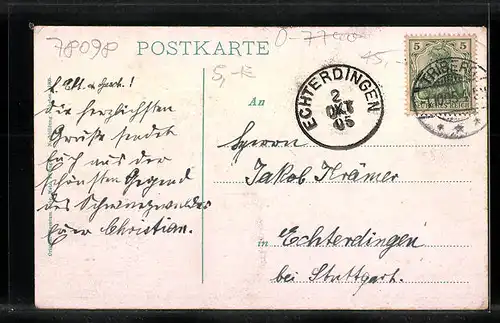 78098
POSTKARTE
0-7700
45,-
5,-€
5 5
DEUTSCHES REICH
TRIBERG
ECHTERDINGEN
2
OKT
05
L. Elt. u. Gesch.!
Die herzlichsten
Grüße sendet
Euch aus der
schönsten Gegend
des Schwarzwaldes
Euer Christian.
An
Herrn
Jakob Krämer
in Echterdingen
bei Stuttgart.